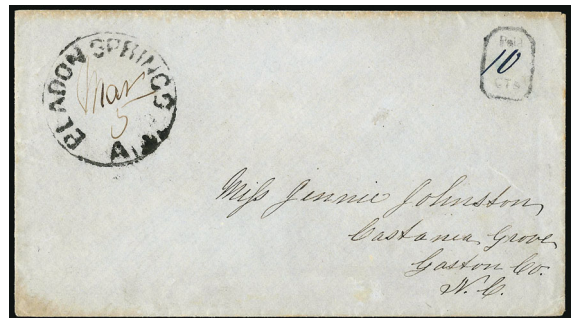 BLADON SPRINGS
Mar
5
Paid
10
CTS
Miss Jennie Johnston
Castania Grove
Gaston Co.
N.C.